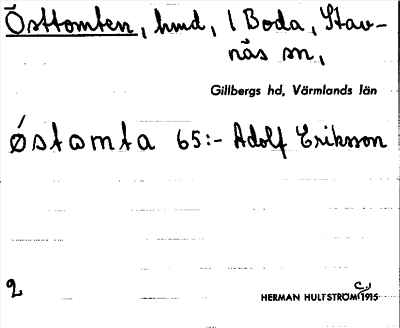 Östtomten, hmd, 1 Boda, Stav-
näs sn,
Gillbergs hd, Värmlands län
østamta 65:- Adolf Eriksson
2
HERMAN HULTSTRÖM 1915